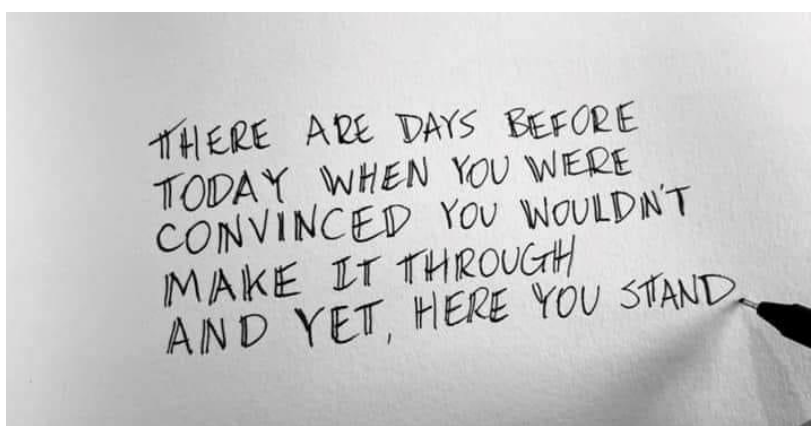 THERE ARE DAYS BEFORE
TODAY WHEN YOU WERE
CONVINCED YOU WOULDN'T
MAKE IT THROUGH
AND YET, HERE YOU STAND